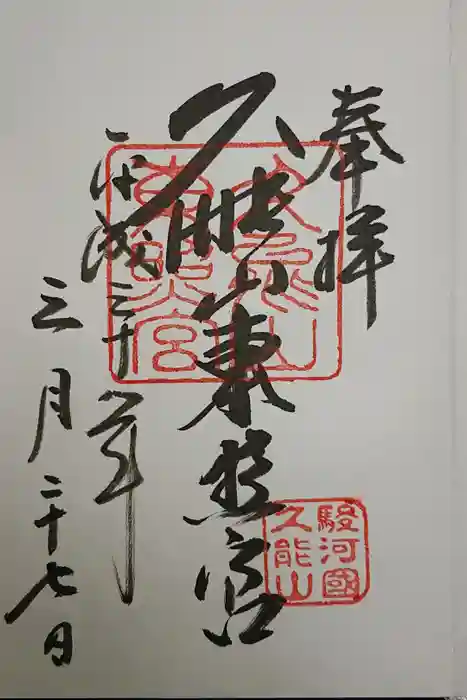 奉拝
久能山東照宮
平成三十年
三月二十七日
久能山東照宮
駿河國
久能山